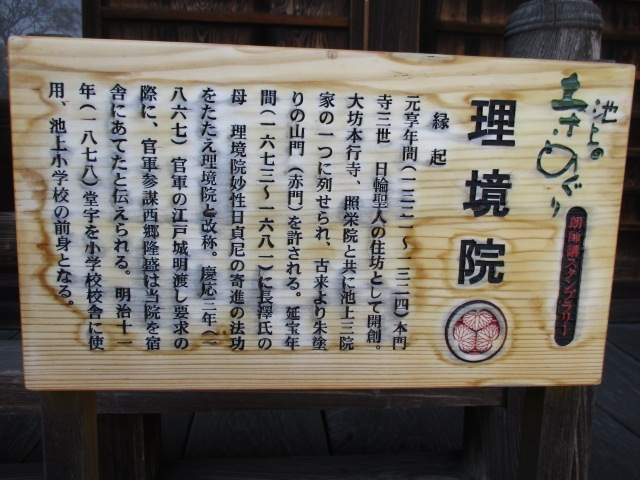 池上の
まちめぐり
朗師講スタンプラリー
理境院
縁起
元亨年間（一三二一〜一三二四）本門
寺三世　日輪聖人の住坊として開創。
大坊本行寺、照栄院と共に池上三院
家の一つに列せられ、古来より朱塗
りの山門（赤門）を許される。延宝年
間（一六七三〜一六八一）に長澤氏の
母　理境院妙性日貞尼の寄進の法功
をたたえ理境院と改称。慶応三年（一
八六七）官軍の江戸城明渡し要求の
際に、官軍参謀西郷隆盛は当院を宿
舎にあてたと伝えられる。明治十一
年（一八七八）堂宇を小学校校舎に使
用、池上小学校の前身となる。